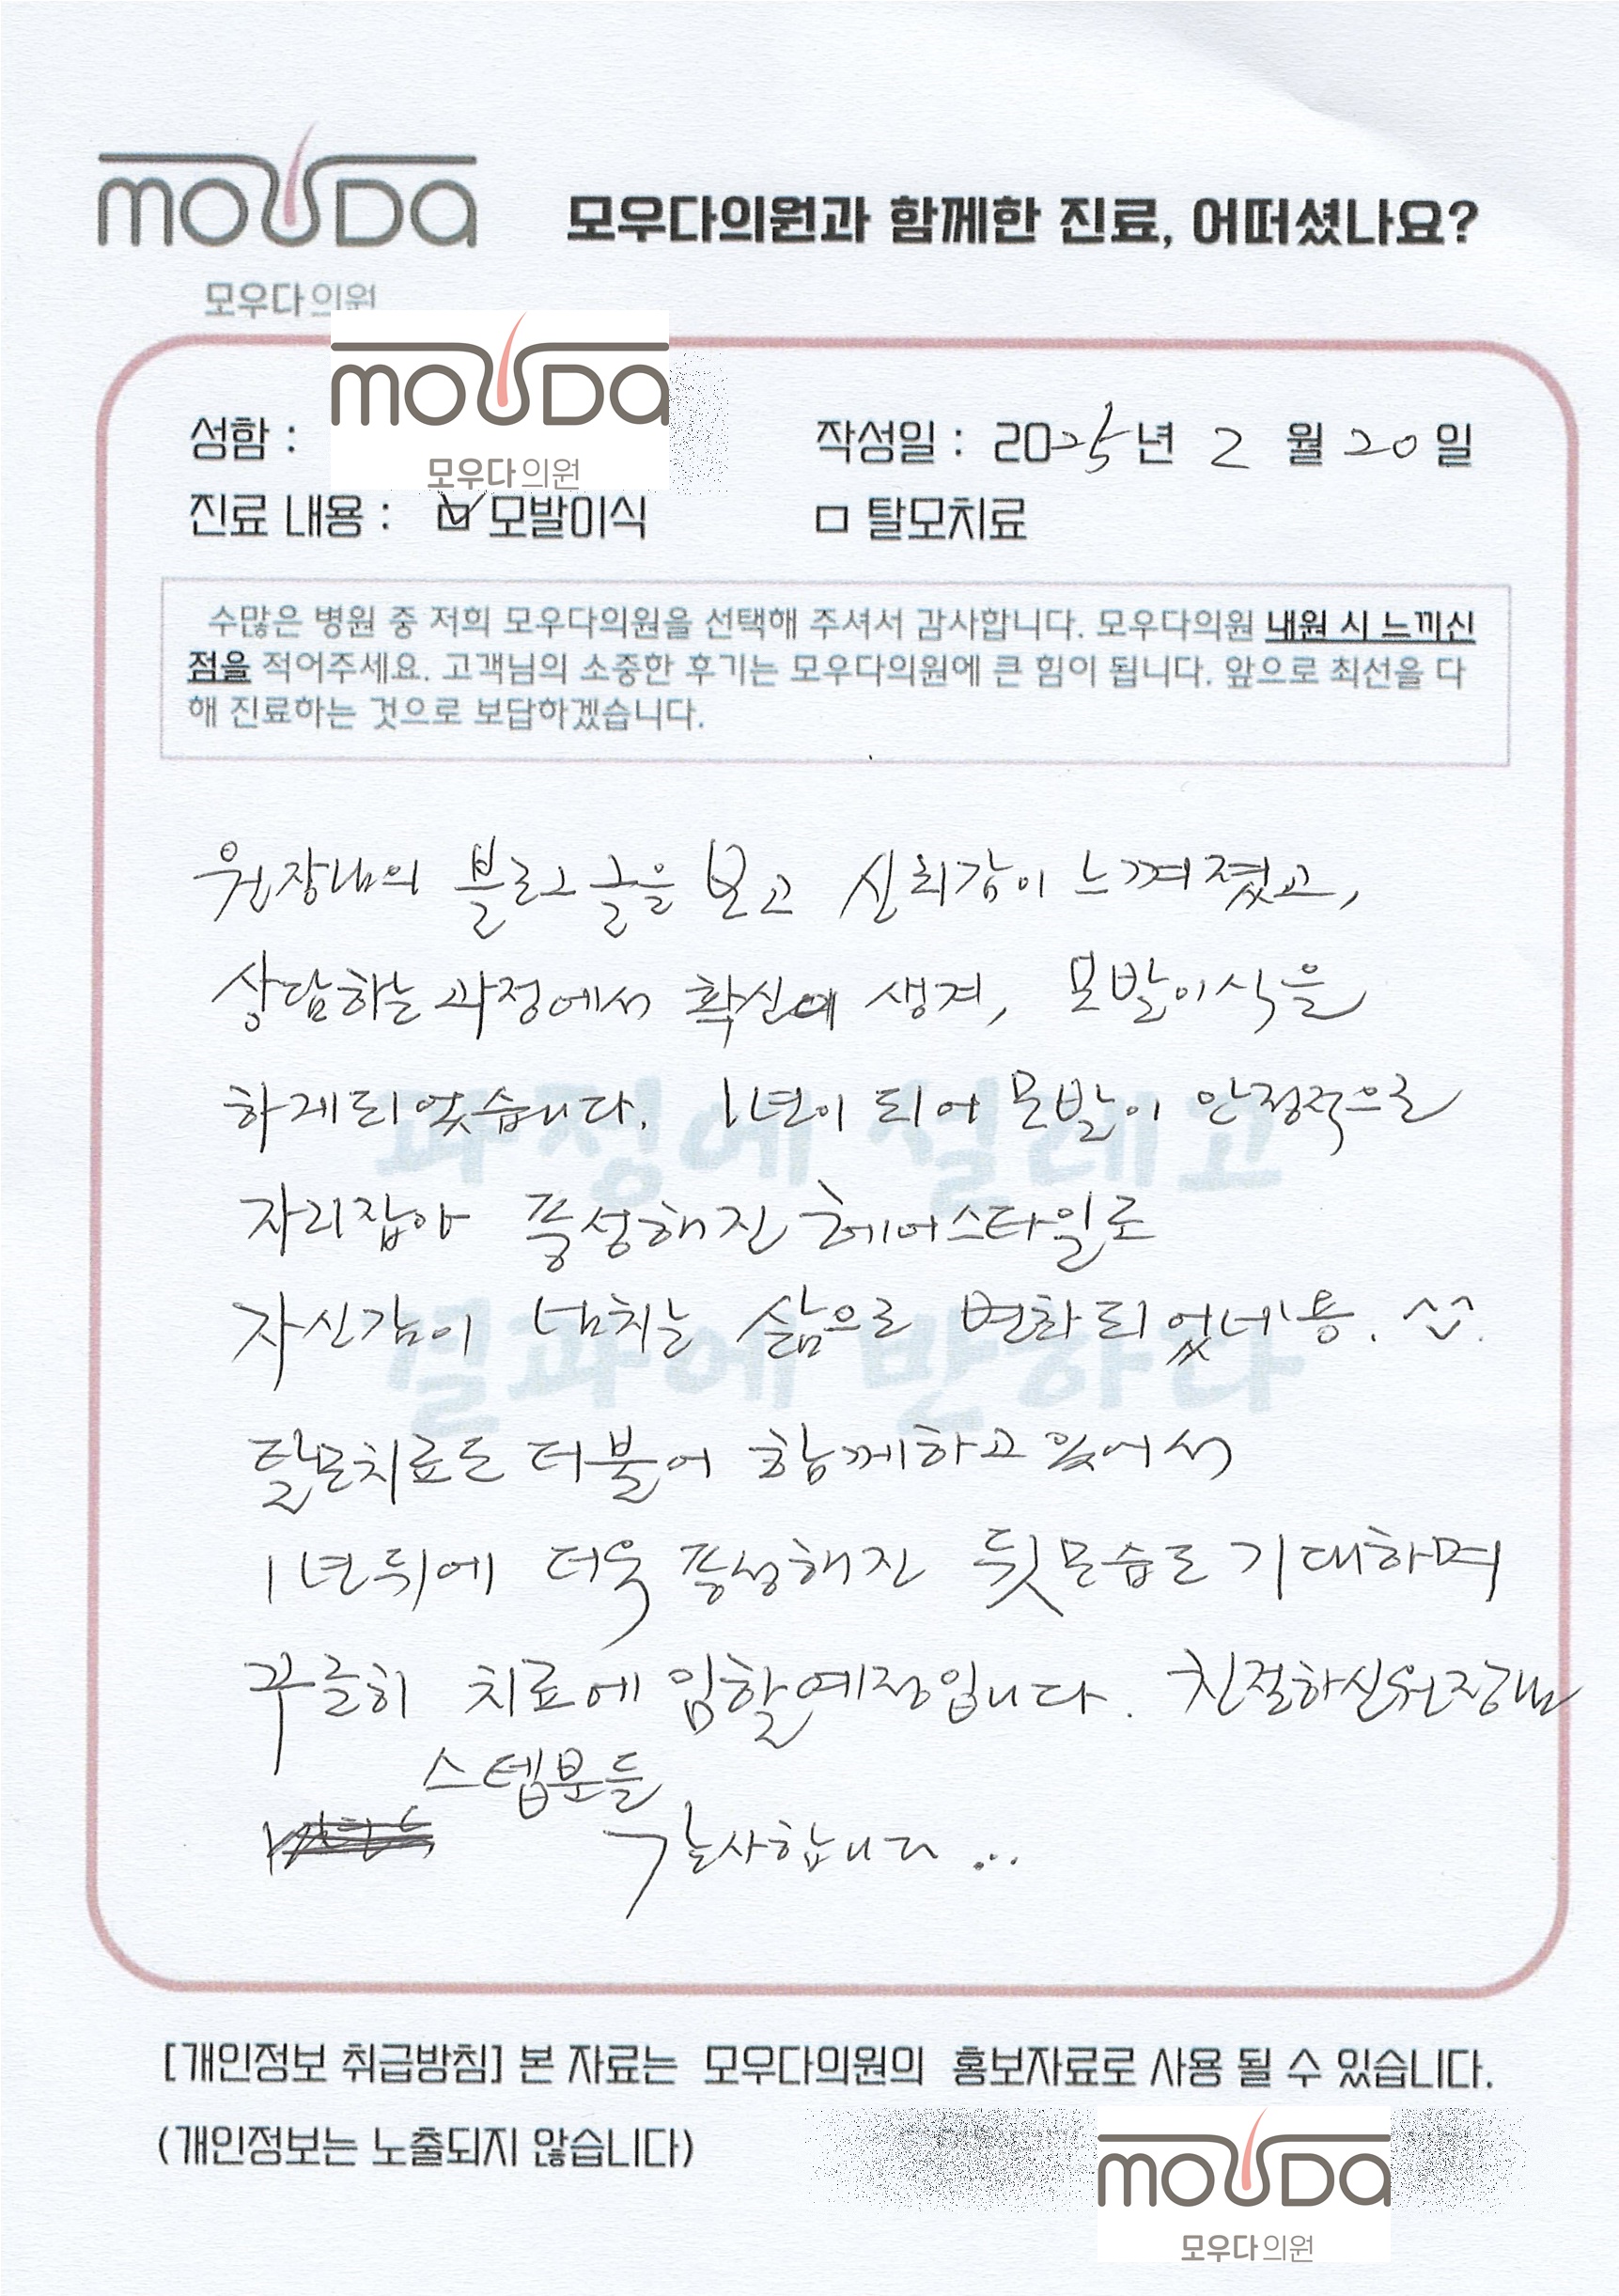 mouDa
모우다의원과 함께한 진료, 어떠셨나요?
모우다의원
mouDa
모우다의원
성함 :
작성일 : 2025년 2 월 20 일
진료 내용 : ☑ 모발이식 □ 탈모치료
수많은 병원 중 저희 모우다의원을 선택해 주셔서 감사합니다. 모우다의원 내원 시 느끼신
점을 적어주세요. 고객님의 소중한 후기는 모우다의원에 큰 힘이 됩니다. 앞으로 최선을 다
해 진료하는 것으로 보답하겠습니다.
원장님의 블로그글을 보고 신뢰감이 느껴졌고,
상담하는 과정에서 확신이 생겨, 모발이식을
하게되었습니다. 1년이 되어 모발이 안정적으로
자리잡아 풍성해진 헤어스타일로
자신감이 넘치는 삶으로 변화되었네용. ^^.
탈모치료도 더불어 함께하고 있어서
1년뒤에 더욱 풍성해진 뒷모습도 기대하며
꾸준히 치료에 임할예정입니다. 친절하신원장님
스텝분들
감사합니다...
과정에 설레고
결과에 반하다
[개인정보 취급방침] 본 자료는 모우다의원의 홍보자료로 사용 될 수 있습니다.
(개인정보는 노출되지 않습니다)
mouDa
모우다의원